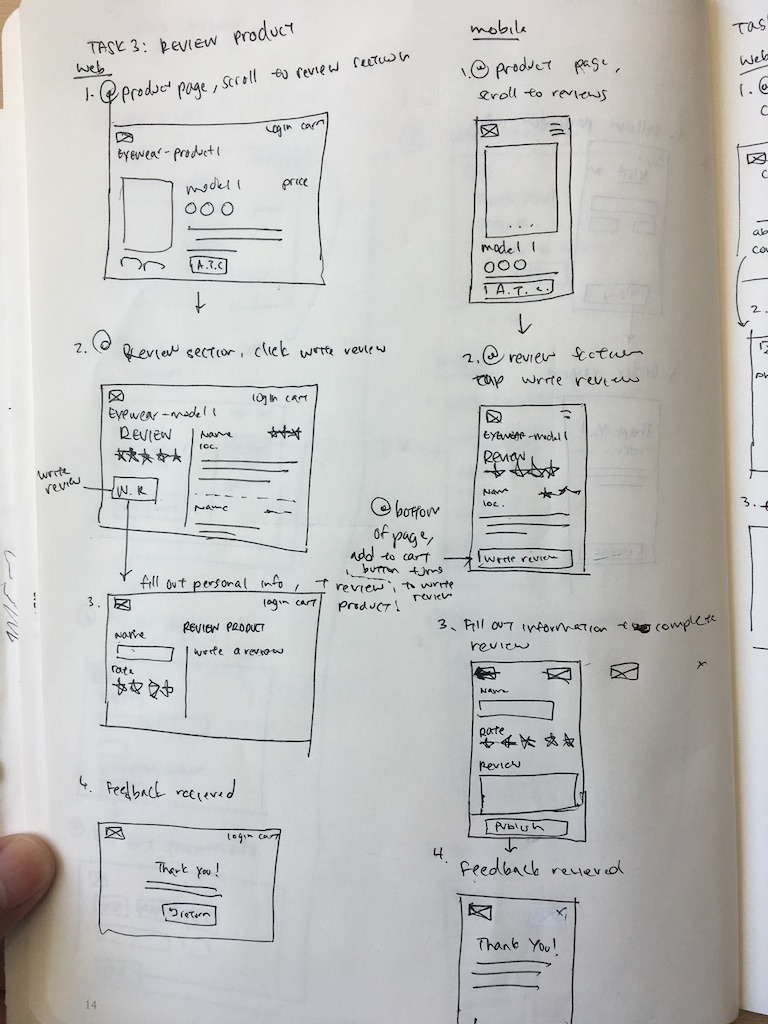 TASK 3: REVIEW PRODUCT
web
1. @ product page, scroll to review section
login cart
Eyewear-product 1
model 1
price
A.T.C
2. @ Review section, click write review
login cart
Eyewear-model 1
REVIEW
Name
loc.
write
review
W.R
Name
fill out personal info, + review product!
3.
login cart
REVIEW PRODUCT
Name
write a review
rate
4. Feedback recieved
login cart
Thank you!
return
mobile
1. @ product page,
scroll to reviews
model 1
A.T.C.
2. @ review section
tap write review
EYEWEAR-model 1
REVIEW
Nam
loc.
write review
@ bottom
of page,
add to cart
button turns
to write
review
3. Fill out information to complete
review
x
Name
Rate
REVIEW
Publish
4.
Feedback recieved
x
Thank You!
14
TAS
web
1. @
2.
3.